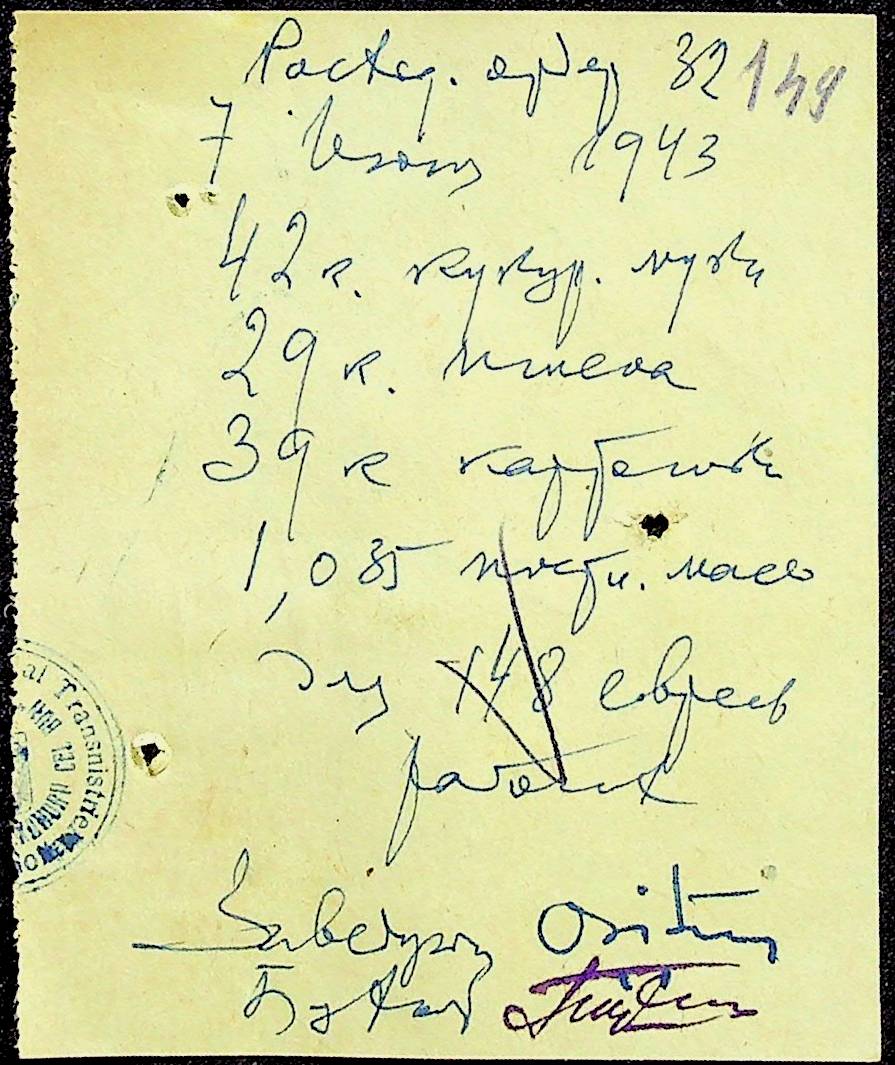 Расход. ордер 32 149
7 Июня 1943
42 к. кукур. муки
29 к. пшена
39 к картошки
1,035 масло
для 148 евреев
рабочих
Заведующ
Бухгал
al Transnistriei